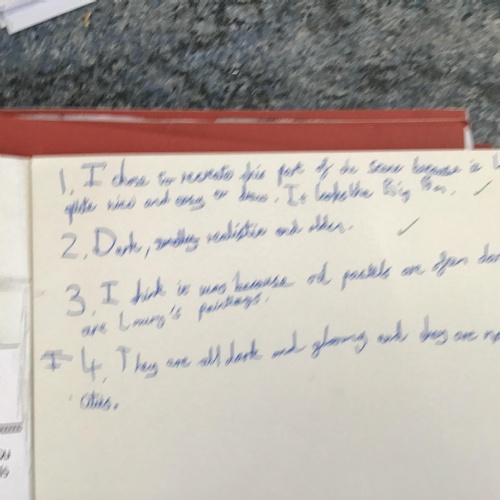 1. I chose to recreate this part of the scene because it
quite nice and easy to draw. It looks like Big Ben.
2. Dark, realistic and
3. I think it was because oil pastels are often
are Lowry's paintings.
4. They are all dark and gloomy and they are
cities.